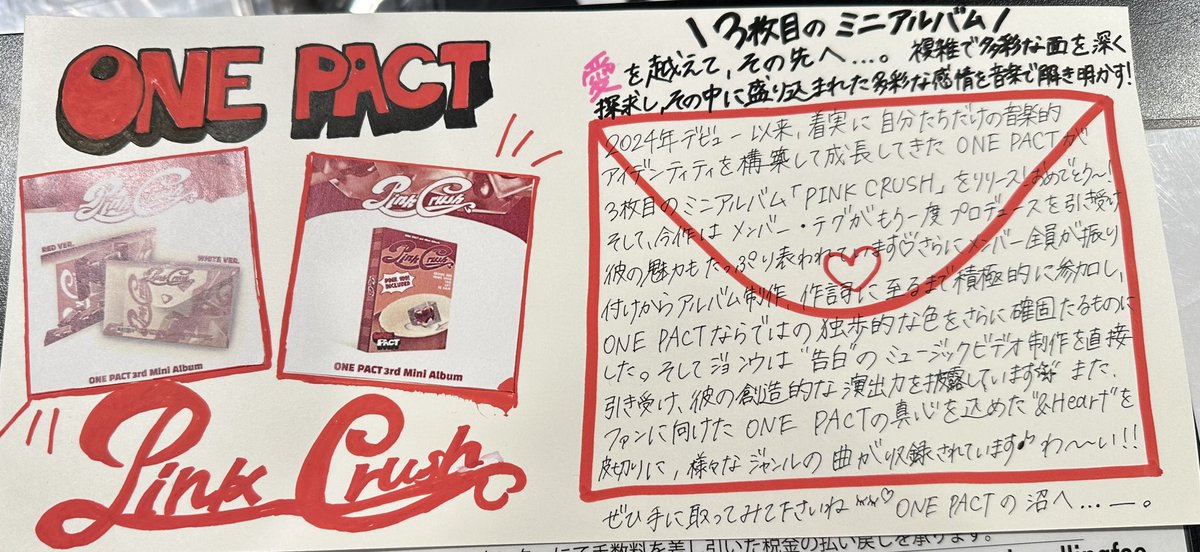 ONE PACT
Pink Crush
RED VER.
WHITE VER.
ONE PACT 3rd Mini Album
Pink Crush
PINK CRUSH
ONE PACT
ONE PACT 3rd Mini Album
Pink Crush
\3枚目のミニアルバム/
愛を越えて、その先へ...。複雑で多彩な面を深く
探求し、その中に盛り込まれた多彩な感情を音楽で解き明かす!
2024年デビュー以来、着実に自分たちだけの音楽的
アイデンティティを構築して成長してきたONE PACTが
3枚目のミニアルバム「PINK CRUSH」をリリース!おめでとう〜!
そして、今作はメンバー・テグがもう一度プロデュースを引き受け
彼の魅力もたっぷり表われています♡さらにメンバー全員が振り
付けからアルバム制作、作詞に至るまで積極的に参加し、
ONE PACTならではの独歩的な色をさらに確固たるものに
した。そしてジョンウは"告白"のミュージックビデオ制作を直接
引き受け、彼の創造的な演出力を披露しています また、
ファンに向けたONE PACTの真心を込めた"&Heart"を
皮切りに、様々なジャンルの曲が収録されています♪わ〜〜い!!
ぜひ手に取ってみてたさいね♡ONE PACTの沼へ...ー。
にて手数料を差し引いた税金の払い戻しを承ります。